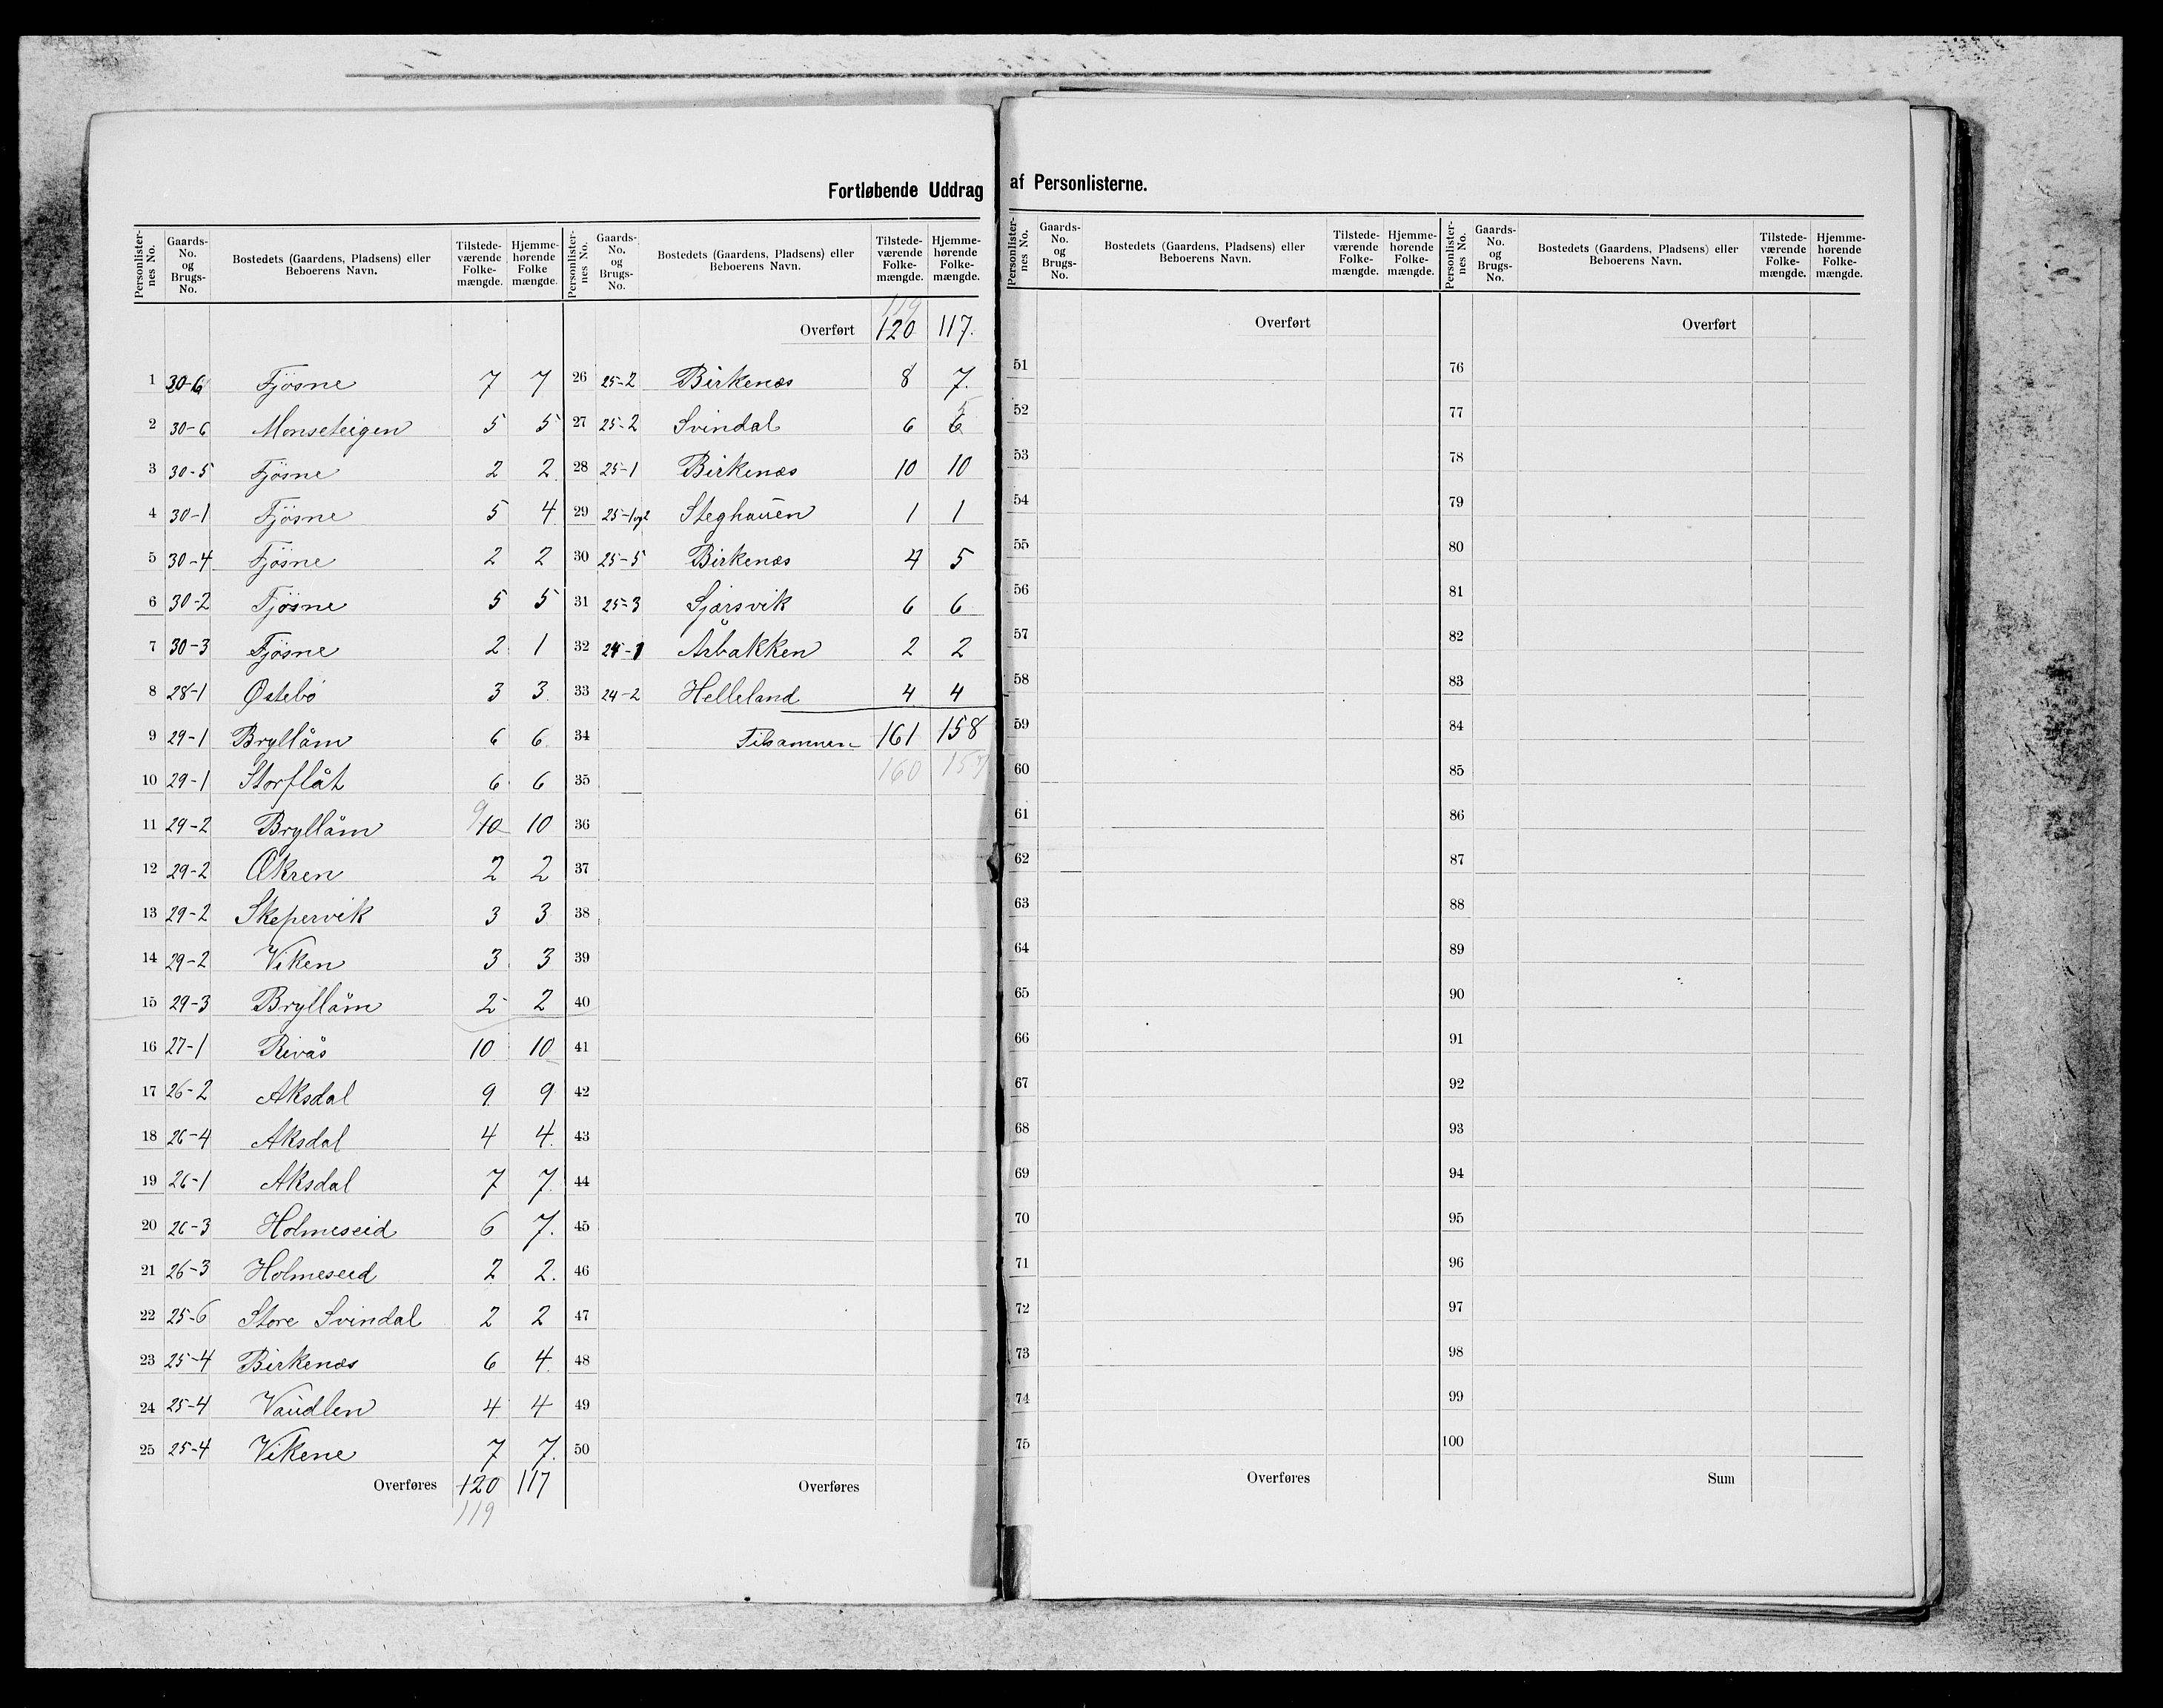 Fortløbende Uddrag af Personlisterne.
Personlister-nes No. | Gaards-No. og Brugs-No. | Bostedets (Gaardens, Pladsens) eller Beboerens Navn. | Tilstede-værende Folke-mængde. | Hjemme-hørende Folke mængde.
1 30-6 Fjøsne 7 7
2 30-6 Monseteigen 5 5
3 30-5 Fjøsne 2 2
4 30-1 Fjøsne 5 4
5 30-4 Fjøsne 2 2
6 30-2 Fjøsne 5 5
7 30-3 Fjøsne 2 1
8 28-1 Østebö 3 3
9 29-1 Brylläm 6 6
10 29-1 Storflåt 6 6
11 29-2 Brylläm 9 10 10
12 29-2 Ækren 2 2
13 29-2 Skepervik 3 3
14 29-2 Viken 3 3
15 29-3 Brylläm 2 2
16 27-1 Rivås 10 10
17 26-2 Aksdal 9 9
18 26-4 Aksdal 4 4
19 26-1 Aksdal 7 7
20 26-3 Holmeseid 6 7
21 26-3 Holmeseid 2 2
22 25-6 Store Svindal 2 2
23 25-4 Birkenæs 6 4
24 25-4 Vaudlen 4 4
25 25-4 Vikene 7 7
Overføres 120 117
119
Personlister-nes No. | Gaards-No. og Brugs-No. | Bostedets (Gaardens, Pladsens) eller Beboerens Navn. | Tilstede-værende Folke-mængde. | Hjemme-hørende Folke-mængde.
119
Overført 120 117.
26 25-2 Birkenæs 8 7.
27 25-2 Svindal 6 5 6
28 25-1 Birkenæs 10 10
29 25-1og2 Steghauen 1 1
30 25-5 Birkenæs 4 5
31 25-3 Sjørsvik 6 6
32 24-1 Årbakken 2 2
33 24-2 Helleland 4 4
34 Tilsammen 161 158
35 160 157
36
37
38
39
40
41
42
43
44
45
46
47
48
49
50
Overføres
Personlister-nes No. | Gaards-No. og Brugs-No. | Bostedets (Gaardens, Pladsens) eller Beboerens Navn. | Tilstede-værende Folke-mængde. | Hjemme-hørende Folke-mængde.
Overført
51
52
53
54
55
56
57
58
59
60
61
62
63
64
65
66
67
68
69
70
71
72
73
74
75
Overføres
Personlister-nes No. | Gaards-No. og Brugs-No. | Bostedets (Gaardens, Pladsens) eller Beboerens Navn. | Tilstede-værende Folke-mængde. | Hjemme-hørende Folke-mængde.
Overført
76
77
78
79
80
81
82
83
84
85
86
87
88
89
90
91
92
93
94
95
96
97
98
99
100
Sum